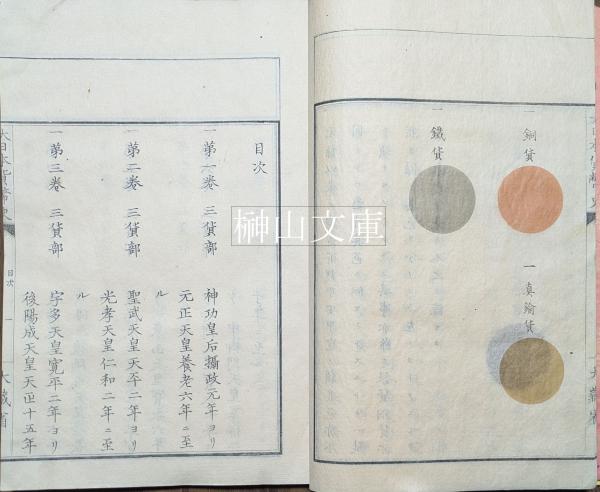 一 銅貨
一 真鍮貨
一 鐵貨
大日本貨幣史
大藏省
目次
一 第一卷 三貨部
神功皇后攝政元年ヨリ
元正天皇養老六年ニ至
ル
一 第二卷 三貨部
聖武天皇天平二年ヨリ
光孝天皇仁和二年ニ至
ル
一 第三卷 三貨部
宇多天皇寛平二年ヨリ
後陽成天皇天正十五年
大日本貨幣史
目次
一
大藏省
榊山文庫